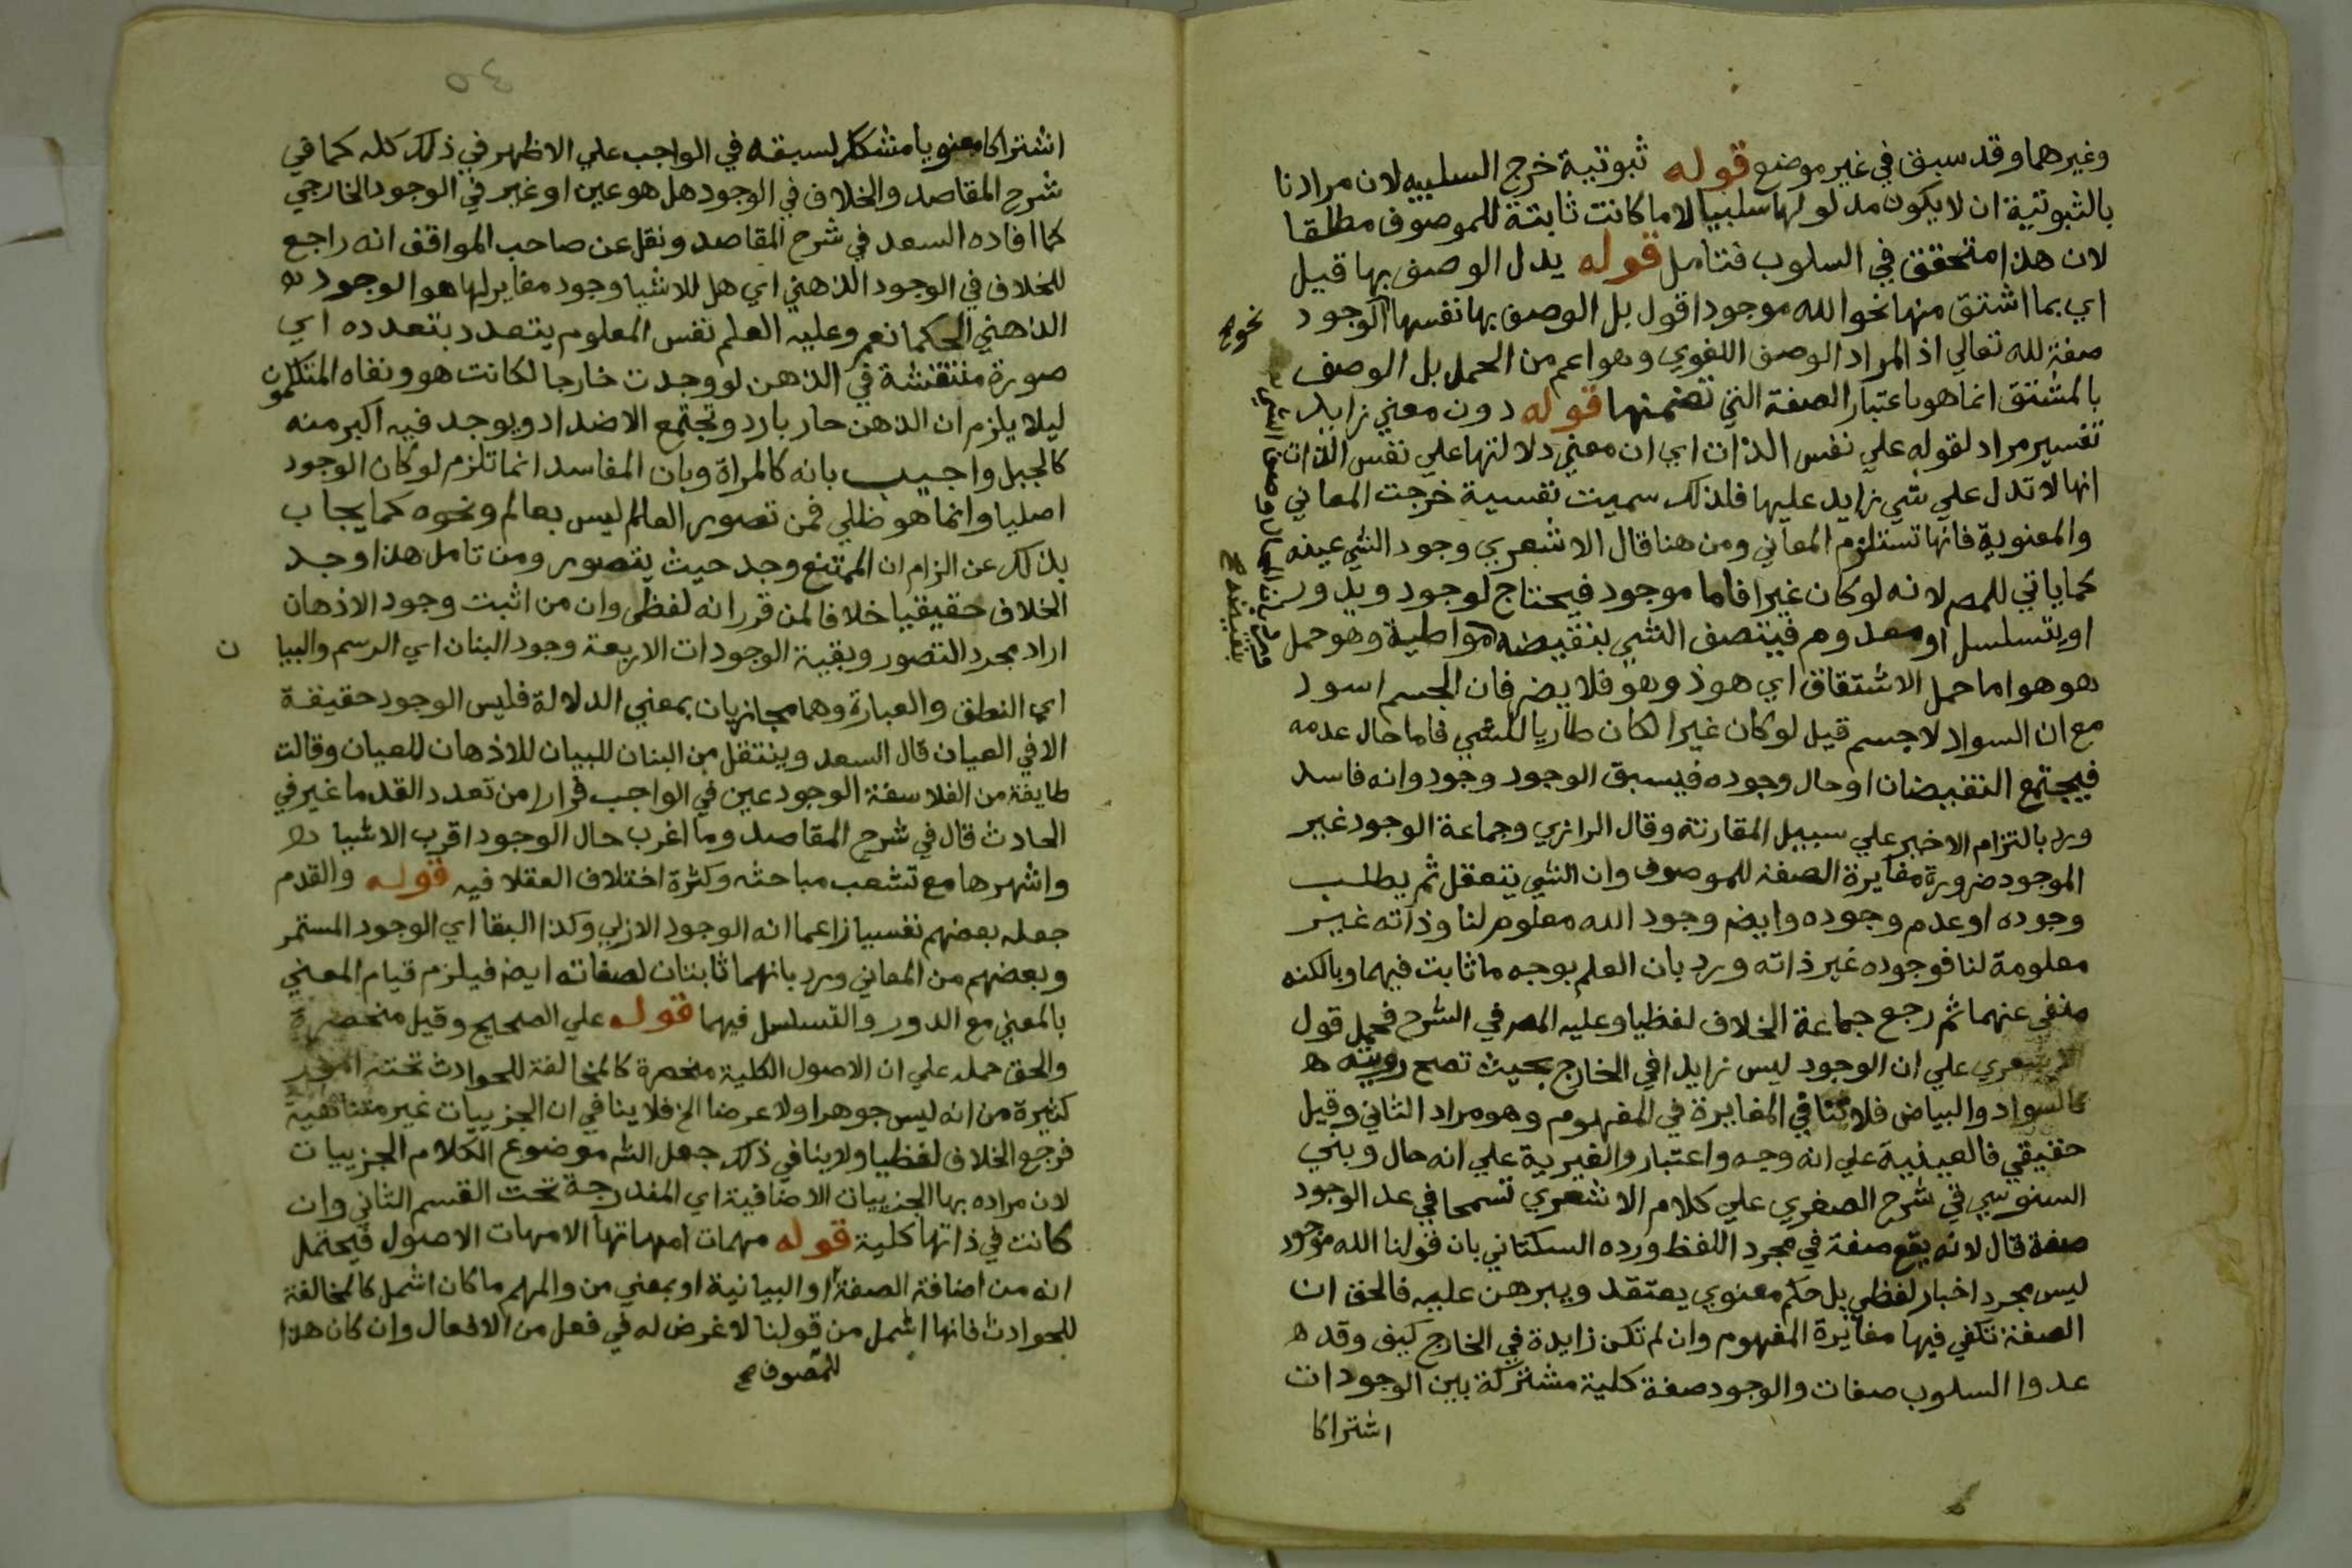 وغيرهما وقد سبق في غير موضع قوله ثبوتية خرج السلبيه لان مرادنا
بالثبوتية ان لا يكون مدلولها سلبيا لا ما كانت ثابتة للموصوف مطلقا
لان هذا متحقق في السلوب فتامل قوله يدل الوصف بها قيل
اي بما اشتق منها نحو الله موجود اقول بل الوصف بها نفسها الوجود
صفة لله تعالي اذ المراد الوصف اللغوي وهو اعم من الحمل بل الوصف
بالمشتق انما هو باعتبار الصفة التي تضمنها قوله دون معني زايد
تفسير مراد لقوله علي نفس الذات اي ان معني دلالتها علي نفس الذات
انها لا تدل علي شي زايد عليها فلذلك سميت نفسية خرجت المعاني
والمعنوية فانها تستلزم المعاني ومن هنا قال الاشعري وجود الشي عينه
كما ياتي للمصر لانه لو كان غيرا فاما موجود فيحتاج لوجود ويدور
او يتسلسل او معدوم فيتصف الشي بنقيضه مواطية وهو حمل
هو هو اما حمل الاشتقاق اي هو ذو هو فلا يضر فان الجسم اسود
مع ان السواد لا جسم قيل لو كان غيرا لكان طاريا للشي فاما حال عدمه
فيجتمع النقيضان او حال وجوده فيسبق الوجود وجود وانه فاسد
ورد بالتزام الاخير علي سبيل المقارنة وقال الرازي وجماعة الوجود غير
الموجود ضرورة مغايرة الصفة للموصوف وان الشي يتعقل ثم يطلب
وجوده او عدم وجوده وايضم وجود الله معلوم لنا وذاته غير
معلومة لنا فوجوده غير ذاته ورد بان العلم بوجه ما ثابت فيهما وبالكنه
منفي عنهما ثم رجع جماعة الخلاف لفظيا وعليه المصر في الشرح فحمل قول
الاشعري علي ان الوجود ليس زايدا في الخارج بحيث تصح رويته ه
كالسواد والبياض فلا ينافي المغايرة في المفهوم وهو مراد الثاني وقيل
حقيقي فالعينية علي انه وجه واعتبار والغيرية علي انه حال وبني
السنوسي في شرح الصغري علي كلام الاشعري تسمحا في عد الوجود
صفة قال لانه يقع صفة في مجرد اللفظ ورده السكتاني بان قولنا الله موجود
ليس مجرد اخبار لفظي بل حكم معنوي يعتقد ويبرهن عليه فالحق ان
الصفة تكفي فيها مغايرة المفهوم وان لم تكن زايدة في الخارج كيف وقد ه
عدوا السلوب صفات والوجود صفة كلية مشتركة بين الوجودات
اشتراكا
نحو
بنقيضه
اشتراكا معنويا مشككا لسبقه في الواجب علي الاظهر في ذلك كله كما في
شرح المقاصد والخلاف في الوجود هل هو عين او غير في الوجود الخارجي
كما افاده السعد في شرح المقاصد ونقل عن صاحب المواقف انه راجع
للخلاف في الوجود الذهني اي هل للاشيا وجود مغاير لها هو الوجود
الذهني الحكما نعم وعليه العلم نفس المعلوم يتعدد بتعدده اي
صورة منتقشة في الذهن لو وجدت خارجا لكانت هو ونفاه المتكلمون
ليلا يلزم ان الذهن حار بارد وتجتمع الاضداد ويوجد فيه اكبر منه
كالجبل واجيب بانه كالمراة وبان المفاسد انما تلزم لو كان الوجود
اصليا وانما هو ظلي فمن تصور العالم ليس بعالم ونحوه كما يجاب
بذلك عن الزام ان الممتنع وجد حيث يتصور ومن تامل هذا وجد
الخلاف حقيقيا خلافا لمن قرر انه لفظي وان من اثبت وجود الاذهان
اراد مجرد التصور وبقية الوجودات الاربعة وجود البنان اي الرسم والبيا ن
اي النطق والعبارة وهما مجازيان بمعني الدلالة فليس الوجود حقيقة
الا في العيان قال السعد وينتقل من البنان للبيان للاذهان للعيان وقالت
طايفة من الفلاسفة الوجود عين في الواجب فرارا من تعدد القدما غير في
الحادث قال في شرح المقاصد وما اغرب حال الوجود اقرب الاشيا
واشهرها مع تشعب مباحثه وكثرة اختلاف العقلا فيه قوله والقدم
جعله بعضهم نفسيا زاعما انه الوجود الازلي وكذا البقا اي الوجود المستمر
وبعضهم من المعاني ورد بانهما ثابتان لصفاته ايضم فيلزم قيام المعني
بالمعني مع الدور والتسلسل فيهما قوله علي الصحيح وقيل منحصرة
والحق حمله علي ان الاصول الكلية منحصرة كالمخالفة للحوادث تحته
كثيرة من انه ليس جوهرا ولا عرضا الخ فلا ينافي ان الجزييات غير متناهية
فرجع الخلاف لفظيا ولا ينافي ذلك جعل الشم موضوع الكلام الجزييات
لان مراده بها الجزييات الاضافية اي المندرجة تحت القسم الثاني وان
كانت في ذاتها كلية قوله مهمات امهاتها الامهات الاصول فيحتمل
انه من اضافة الصفة او البيانية او بمعني من والمهم ما كان اشمل كالمخالفة
للحوادث فانها اشمل من قولنا لا غرض له في فعل من الافعال وان كان هذا
للموصوف صح